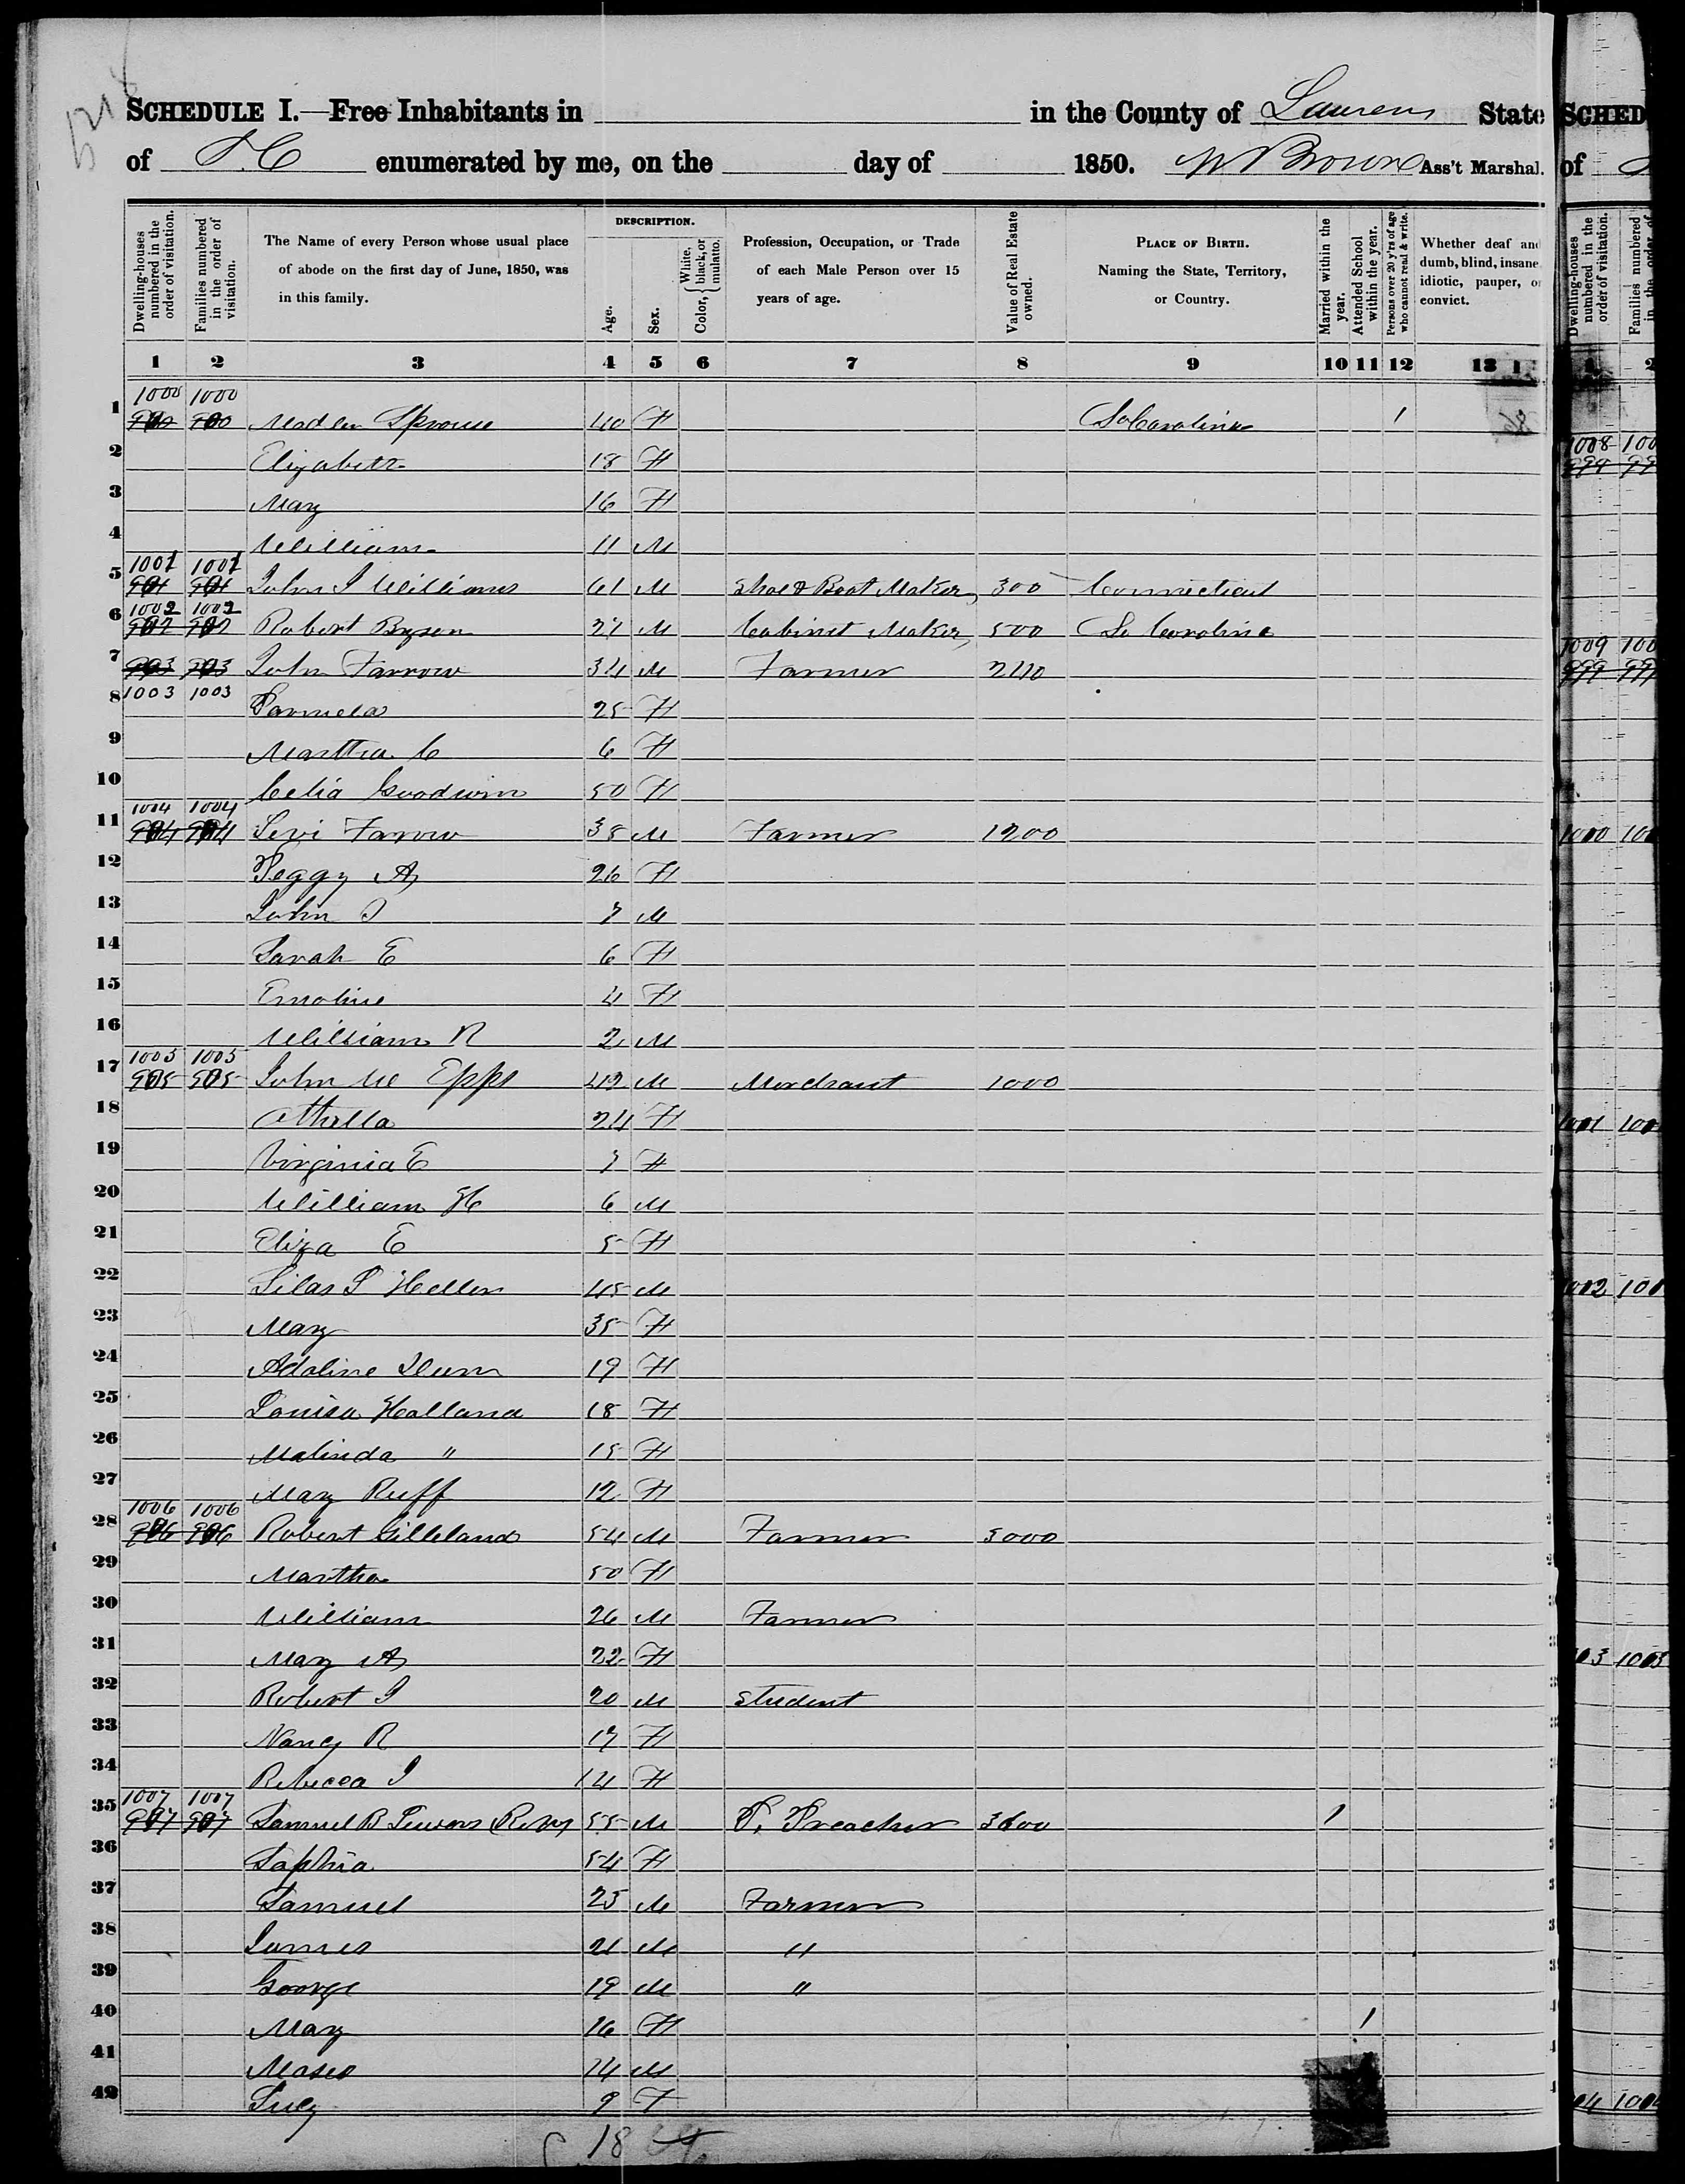 SCHEDULE I.—Free Inhabitants in in the County of Laurens State
of S. C enumerated by me, on the day of 1850. W Brown Ass't Marshal.
Dwelling-houses numbered in the order of visitation.
Families numbered in the order of visitation.
The Name of every Person whose usual place of abode on the first day of June, 1850, was in this family.
DESCRIPTION.
Age.
Sex.
Color, { White, black, or mulatto.
Profession, Occupation, or Trade of each Male Person over 15 years of age.
Value of Real Estate owned.
PLACE OF BIRTH. Naming the State, Territory, or Country.
Married within the year.
Attended School within the year.
Persons over 20 y'rs of age who cannot read & write.
Whether deaf and dumb, blind, insane, idiotic, pauper, or convict.
1 2 3 4 5 6 7 8 9 10 11 12 13
1000 1000
1 Sprouse 40 F So Carolina 1
2 Elizabeth 18 F
3 Mary 16 F
4 William 11 M
1001 1001
5 John S Williams 61 M Shoe & Boot Maker 300 Connecticut
1002 1002
6 Robert Bryson 27 M Cabinet Maker 500 So Carolina
7 John Farrow 34 M Farmer 240
1003 1003
8 Parmela 25 F
9 Martha C 6 F
10 Celia Goodwin 50 F
1004 1004
11 Levi Farrow 38 M Farmer 1200
12 Peggy A 26 F
13 John 7 M
14 Sarah E 6 F
15 Emoline 4 F
16 William R 2 M
1005 1005
17 John W Epps 42 M Merchant 1000
18 Athella 24 F
19 Virginia E 7 F
20 William H 6 M
21 Eliza E 5 F
22 Silas S Heller 45 M
23 Mary 35 F
24 Adoline 19 F
25 Louisa Holland 18 F
26 Malinda " 15 F
27 Mary Ruff 12 F
1006 1006
28 Robert Gilleland 54 M Farmer 3000
29 Martha 50 F
30 William 26 M Farmer
31 Mary A 22 F
32 Robert J 20 M Student
33 Nancy R 17 F
34 Rebecca J 14 F
1007 1007
35 Samuel B Lewers (Rev) 55 M P. Preacher 3600 1
36 Saphia 54 F
37 Samuel 25 M Farmer
38 James 21 M "
39 George 19 M "
40 Mary 16 F 1
41 Moses 14 M
42 Lucy 9 F
18